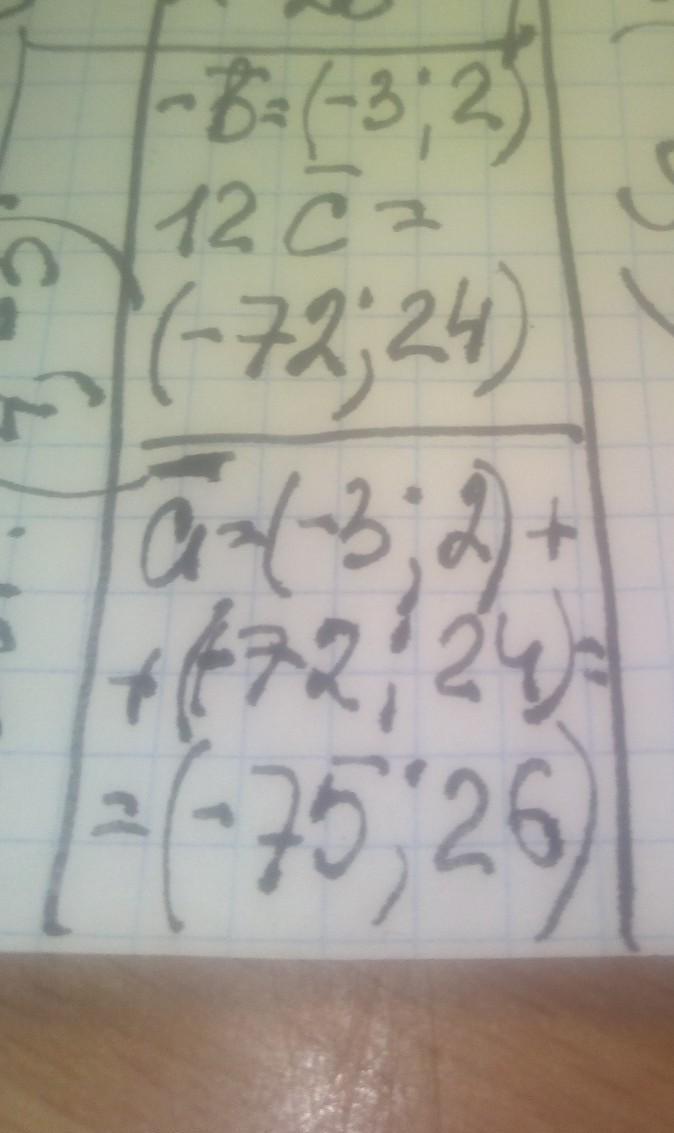 -b̅=(-3;2)
12 c̅ =
(-72;24)
a̅=(-3;2)+
+(-72;24)=
=(-75;26)